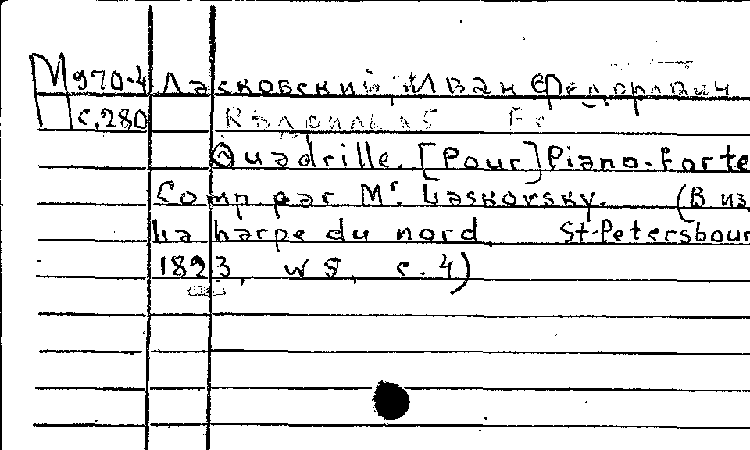 М970-4 Ласковский, Иван Федорович
с.280 Кадриль
Quadrille. [Pour] Piano-forte
Comp. par Mr. Laskovsky. (В из
La harpe du nord, St-Petersbour
1823, с. 4)